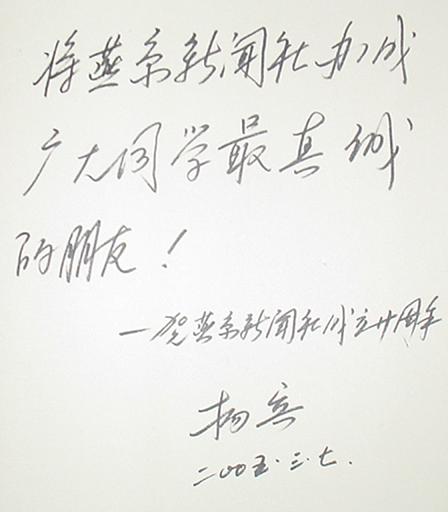 将燕京新闻社办成
广大同学最真诚
的朋友！
—贺燕京新闻社成立十周年
杨宾
二〇〇五.三.七.